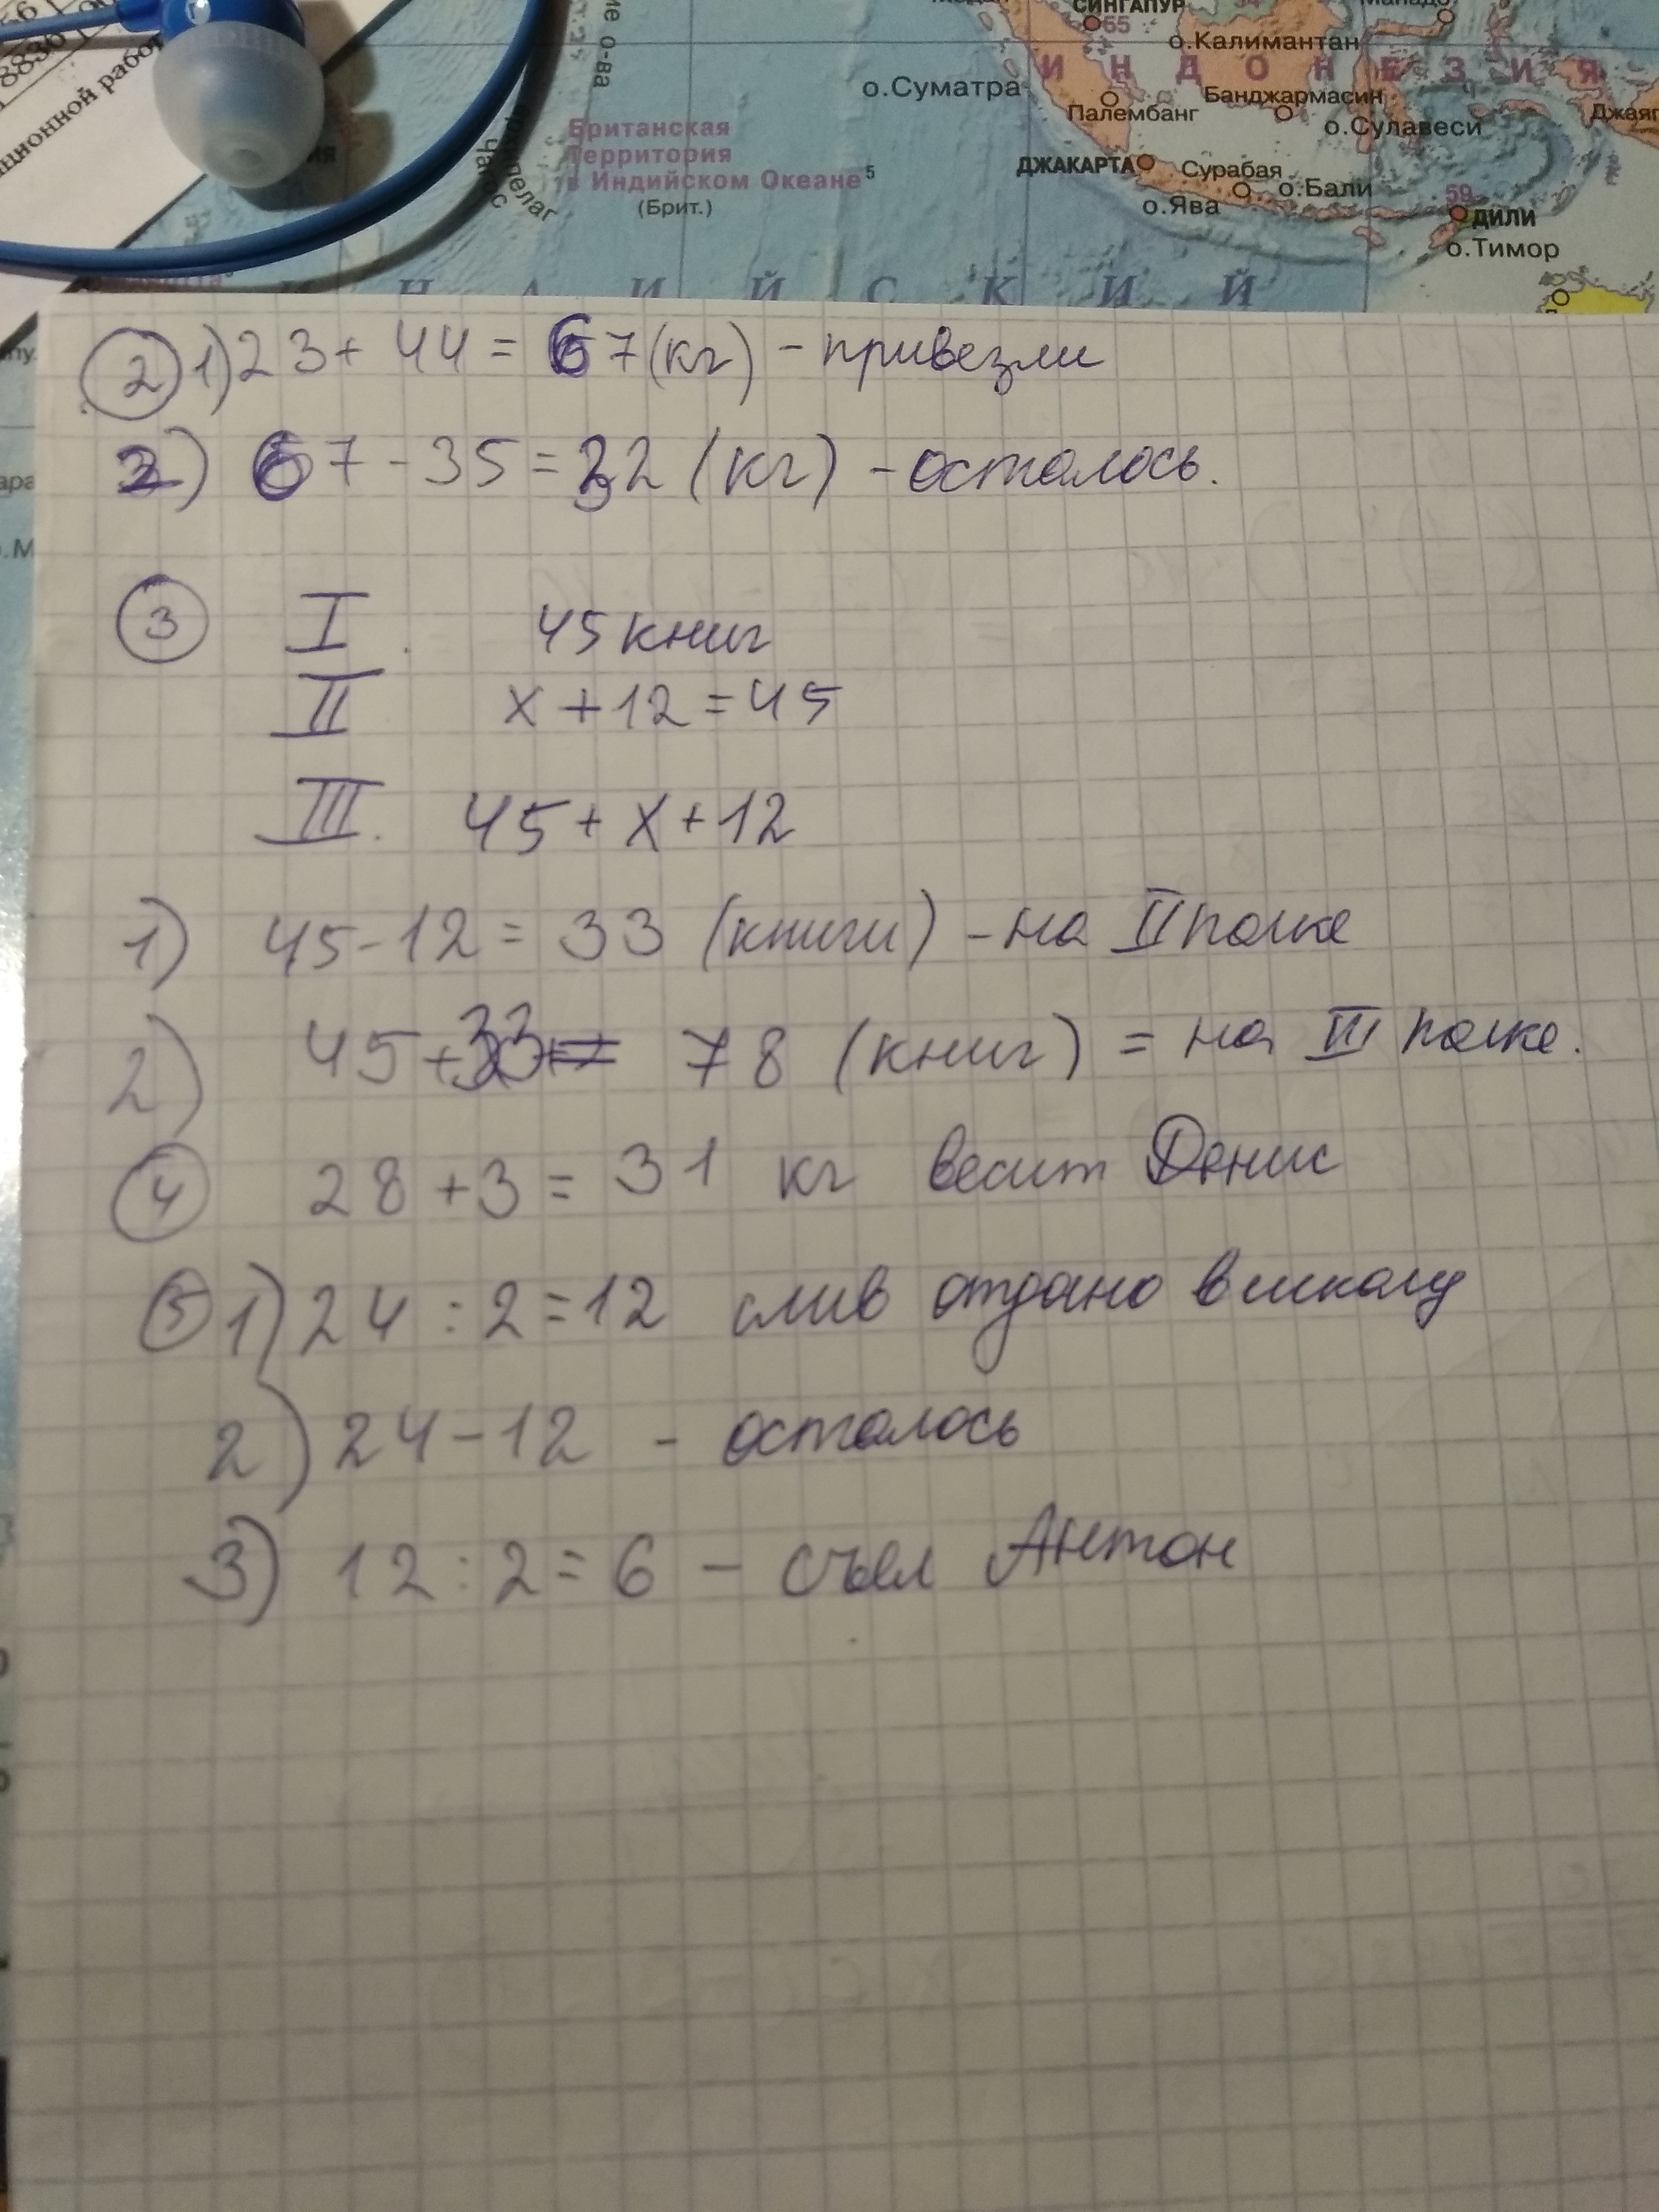 8836
ционной рабо
ие о-ва
Чагос
Британская
Территория
в Индийском Океане 5
(Брит.)
СИНГАПУР
65
о.Калимантан
ИНДОНЕЗИЯ
о.Суматра
Палембанг
Банджармасин
о.Сулавеси
ДЖАКАРТА
Сурабая
о.Бали
о.Ява
59
ДИЛИ
о.Тимор
Н Д И Й С К И Й
2 1) 23 + 44 = 67 (кг) - привезли
2) 67 - 35 = 32 (кг) - осталось.
3 I. 45 книг
II x + 12 = 45
III. 45 + x + 12
1) 45 - 12 = 33 (книги) - на II полке
2) 45 + 33 = 78 (книг) = на III полке.
4 28 + 3 = 31 кг весит Денис
5 1) 24 : 2 = 12 слив отдано в школу
2) 24 - 12 - осталось
3) 12 : 2 = 6 - съел Антон